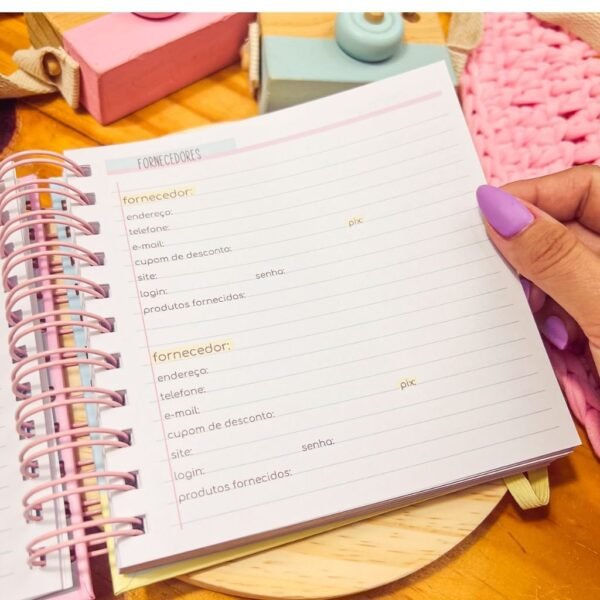 FORNECEDORES
fornecedor:
endereço:
telefone:
e-mail: pix:
cupom de desconto:
site:
login: senha:
produtos fornecidos:
fornecedor:
endereço:
telefone:
e-mail: pix:
cupom de desconto:
site:
login: senha:
produtos fornecidos: